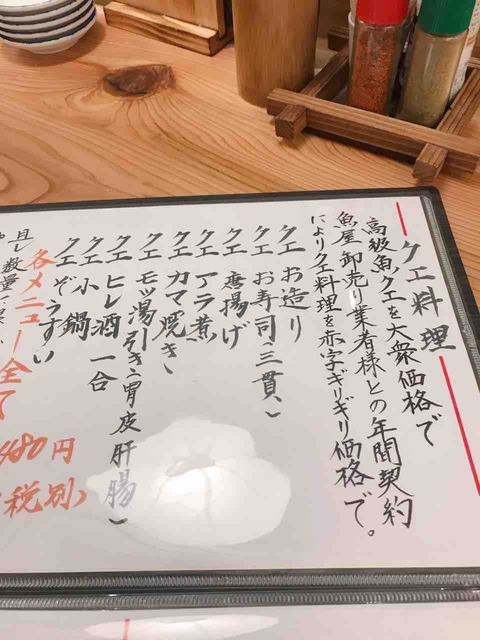 クエ料理
高級魚クエを大衆価格で
魚屋卸売り業者様との年間契約
によりクエ料理を赤字ギリギリ価格で。
クエお造り
クエお寿司(三貫)
クエ唐揚げ
クエアラ煮
クエカマ焼き
クエモツ湯引き(胃皮肝腸)
クエヒレ酒 一合
クエ小鍋
クエぞうすい
各メニュー全て
480円
税別)
且し数量